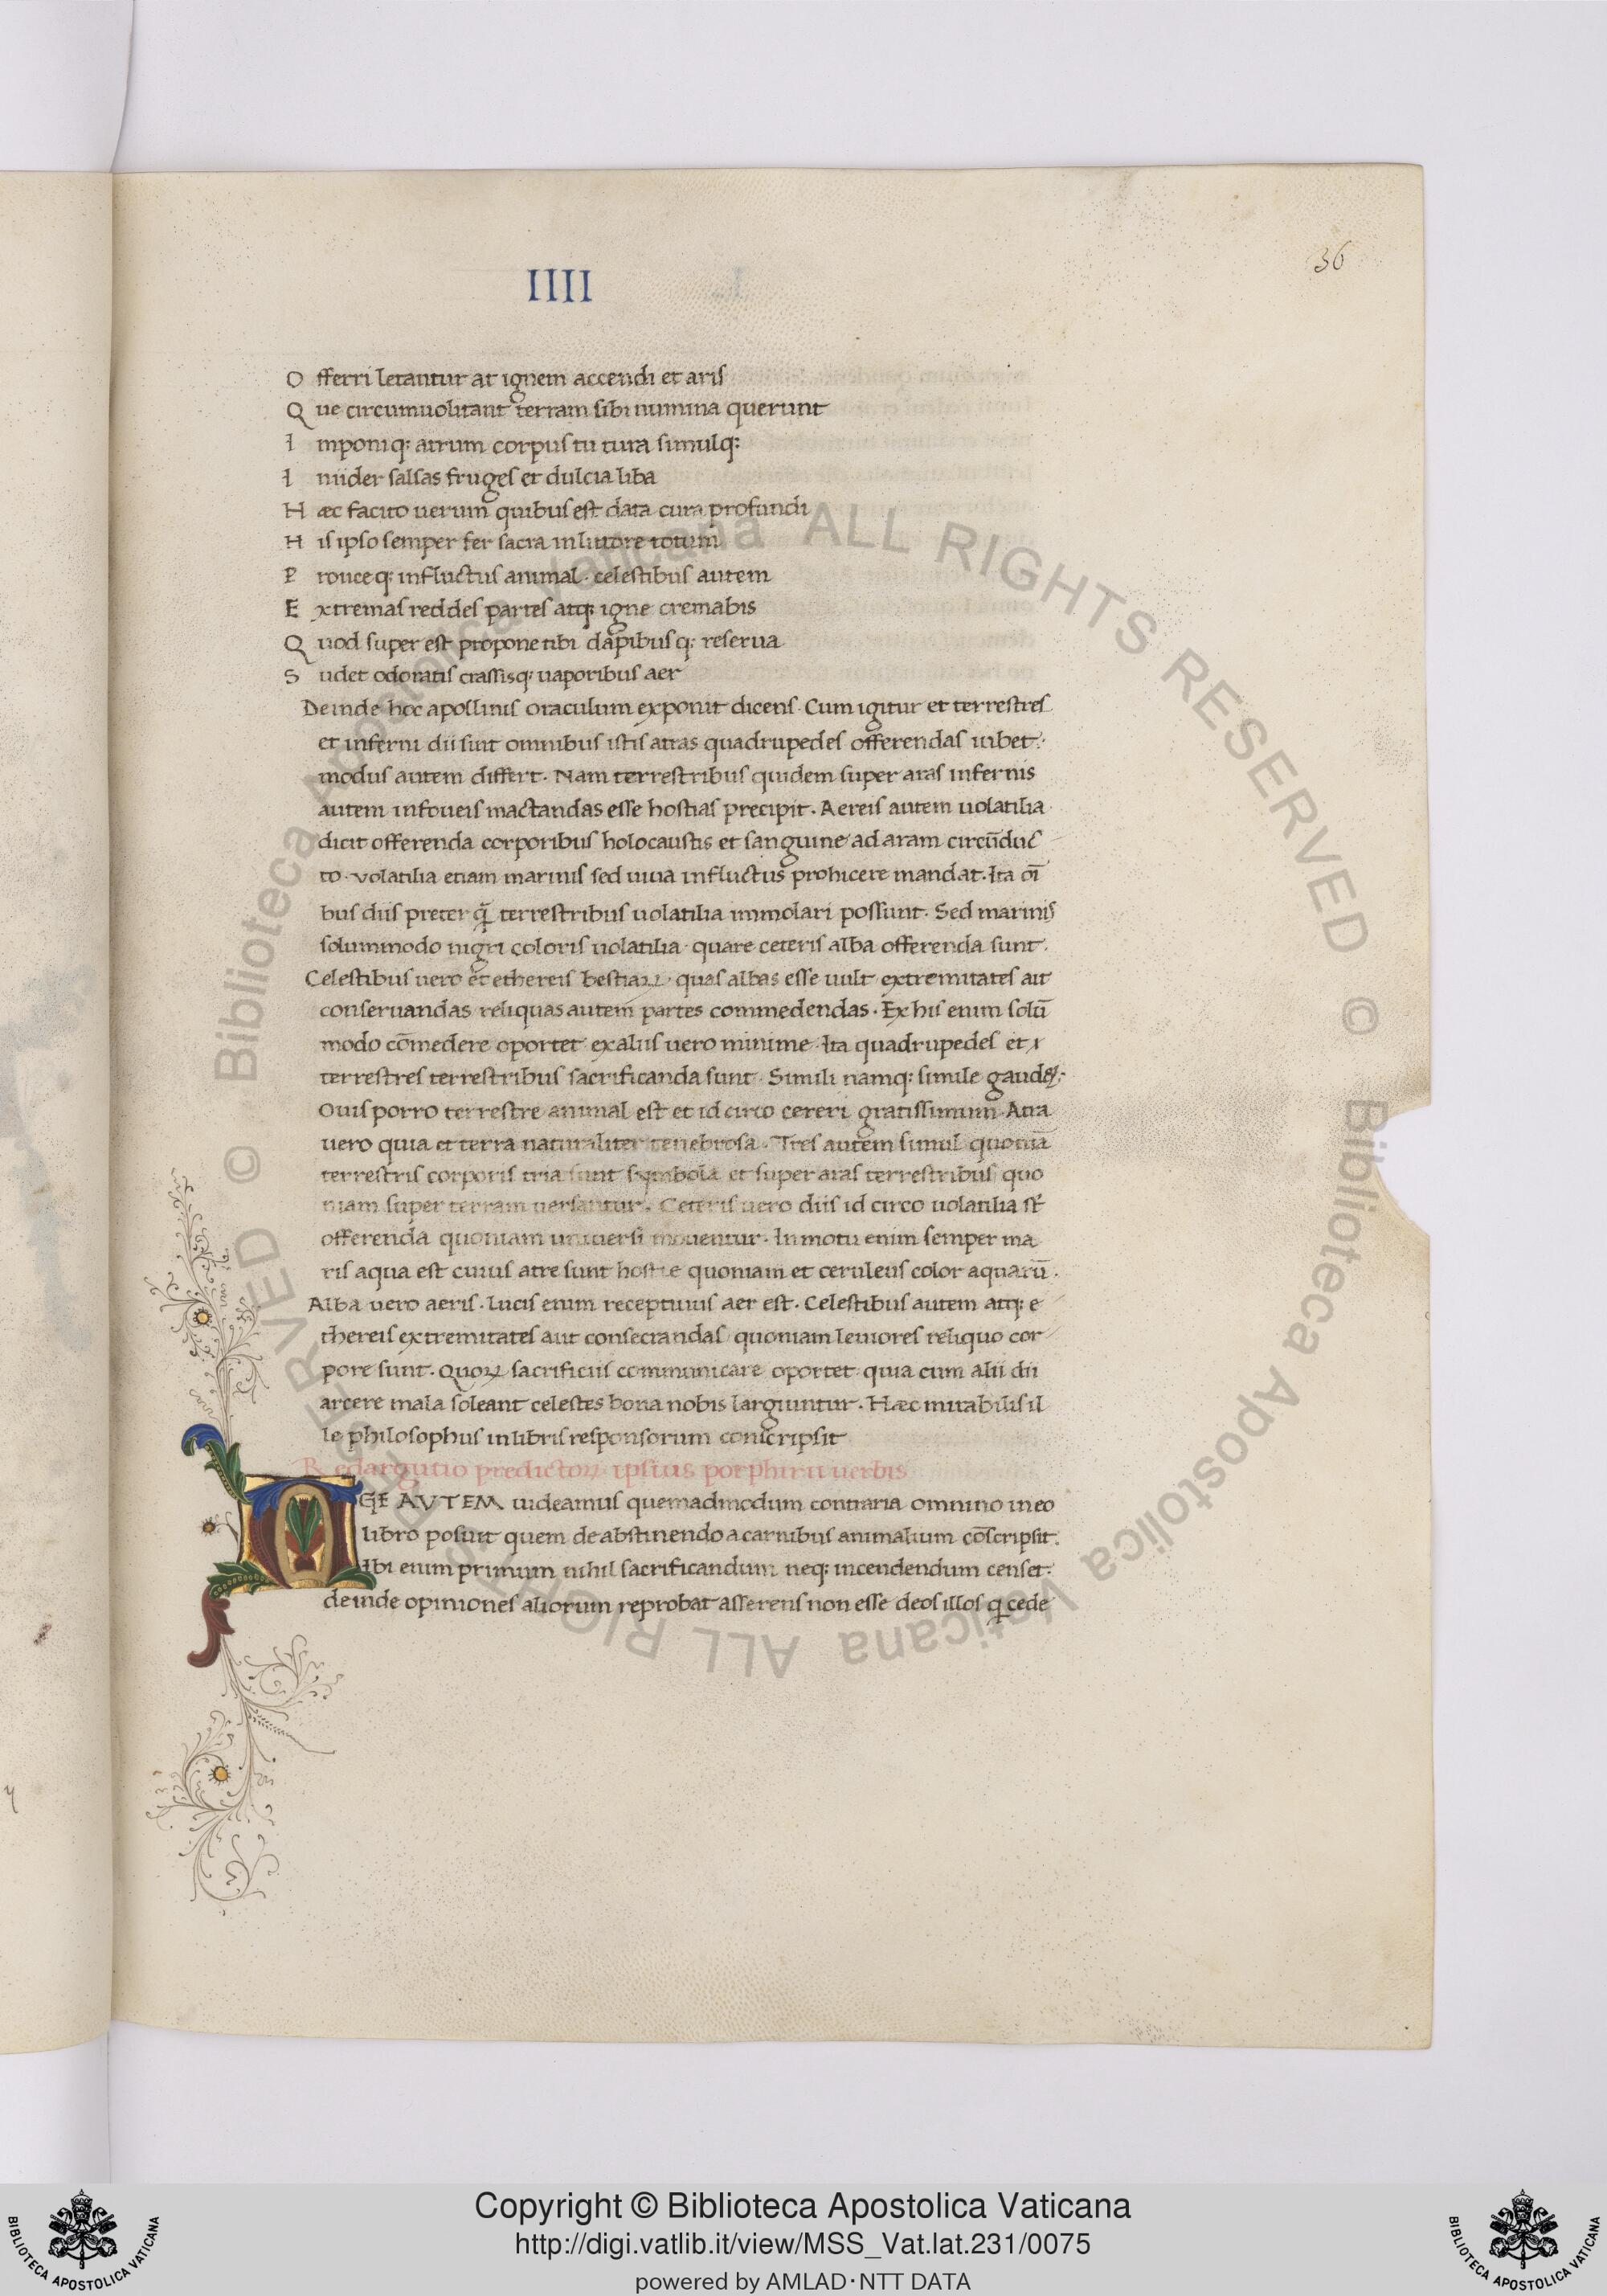 IIII
36
O fferri letantur at ignem accendi et aris
Q ue circumuolitant terram sibi numina querunt
I mponiq: atrum corpus tu tura simulq:
I niider salsas fruges et dulcia liba
H æc facito uerum quibus est data cura profundi
H is ipso semper fer sacra in littore totum
P roiiceq: in fluctus animal · celestibus autem
E xtremas reddes partes atq: igne cremabis
Q uod super est propone tibi dapibusq: reserua
S udet odoratis crassisq: uaporibus aer
Deinde hoc apollinis oraculum exponit dicens · Cum igitur et terrestres
et inferni dii sint omnibus istis atras quadrupedes offerendas iubet:·
modus autem differt · Nam terrestribus quidem super aras infernis
autem in foueis mactandas esse hostias precipit · Aereis autem uolatilia
dicit offerenda corporibus holocaustis et sanguine ad aram circūduc
to · volatilia etiam marinis sed uiua in fluctus prohicere mandat · Ita oī
bus diis preter q̄ terrestribus uolatilia immolari possunt · Sed marinis
solummodo nigri coloris uolatilia · quare ceteris alba offerenda sunt ·
Celestibus uero et ethereis bestiaꝝ · quas albas esse uult extremitates aut
conseruandas reliquas autem partes commedendas · Ex his enim solū
modo cōmedere oportet ex aliis uero minime · Ita quadrupedes et
terrestres terrestribus sacrificanda sunt · Simili namq: simile gaudet:·
Ouis porro terrestre animal est et id circo cereri gratissimum · Atra
uero quia et terra naturaliter tenebrosa · Tres autem simul quoniā
terrestris corporis tria sunt symbola et super aras terrestribus quo
niam super terram uersantur · Ceteris uero diis id circo uolatilia st̄
offerenda quoniam uniuersi mouentur · In motu enim semper ma
ris aqua est cuius atre sunt hostie quoniam et ceruleus color aquarū ·
Alba uero aeris · lucis enim receptiuus aer est · Celestibus autem atq: e
thereis extremitates aut consecrandas quoniam leuiores reliquo cor
pore sunt · Quoꝝ sacrificiis communicare oportet quia cum alii dii
arcere mala soleant celestes bona nobis largiuntur · Hæc mirabilis il
le philosophus in libris responsorum conscripsit
Redargutio predictoꝝ ipsius porphirii uerbis
AGE AVTEM uideamus quemadmodum contraria omnino in eo
libro posuit quem de abstinendo a carnibus animalium cōscripsit ·
Ibi enim primum nihil sacrificandum neq: incendendum censet:
deinde opiniones aliorum reprobat asserens non esse deos illos q̄ cede
© Biblioteca Apostolica Vaticana ALL RIGHTS RESERVED © Biblioteca Apostolica Vaticana ALL RIGHTS RESERVED
Copyright © Biblioteca Apostolica Vaticana
http://digi.vatlib.it/view/MSS_Vat.lat.231/0075
powered by AMLAD·NTT DATA
BIBLIOTECA APOSTOLICA VATICANA
BIBLIOTECA APOSTOLICA VATICANA